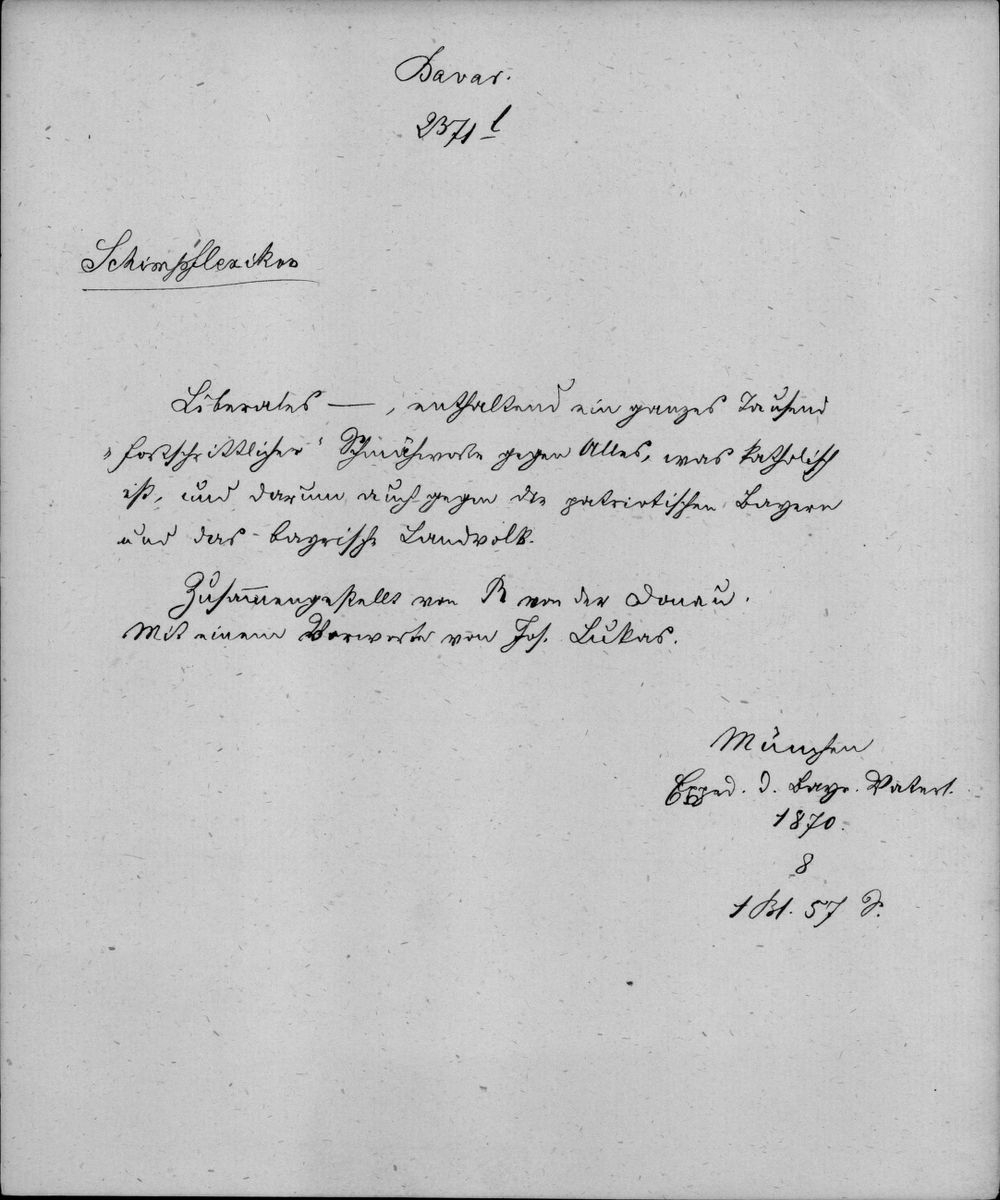 Bavar.
2371 l
Schimpflexikon
Liberales — , enthaltend ein ganzes Tausend
„fortschrittlicher“ Schmähworte gegen Alles, was katholisch
ist, und darum auch gegen die patriotischen Bayern
und das bayrische Landvolk.
Zusammengestellt von R von der Donau.
Mit einem Vorworte von Jos. Lukas.
München
Exped. d. Bayr. Vaterl.
1870.
8
1 Bl. 57 S.